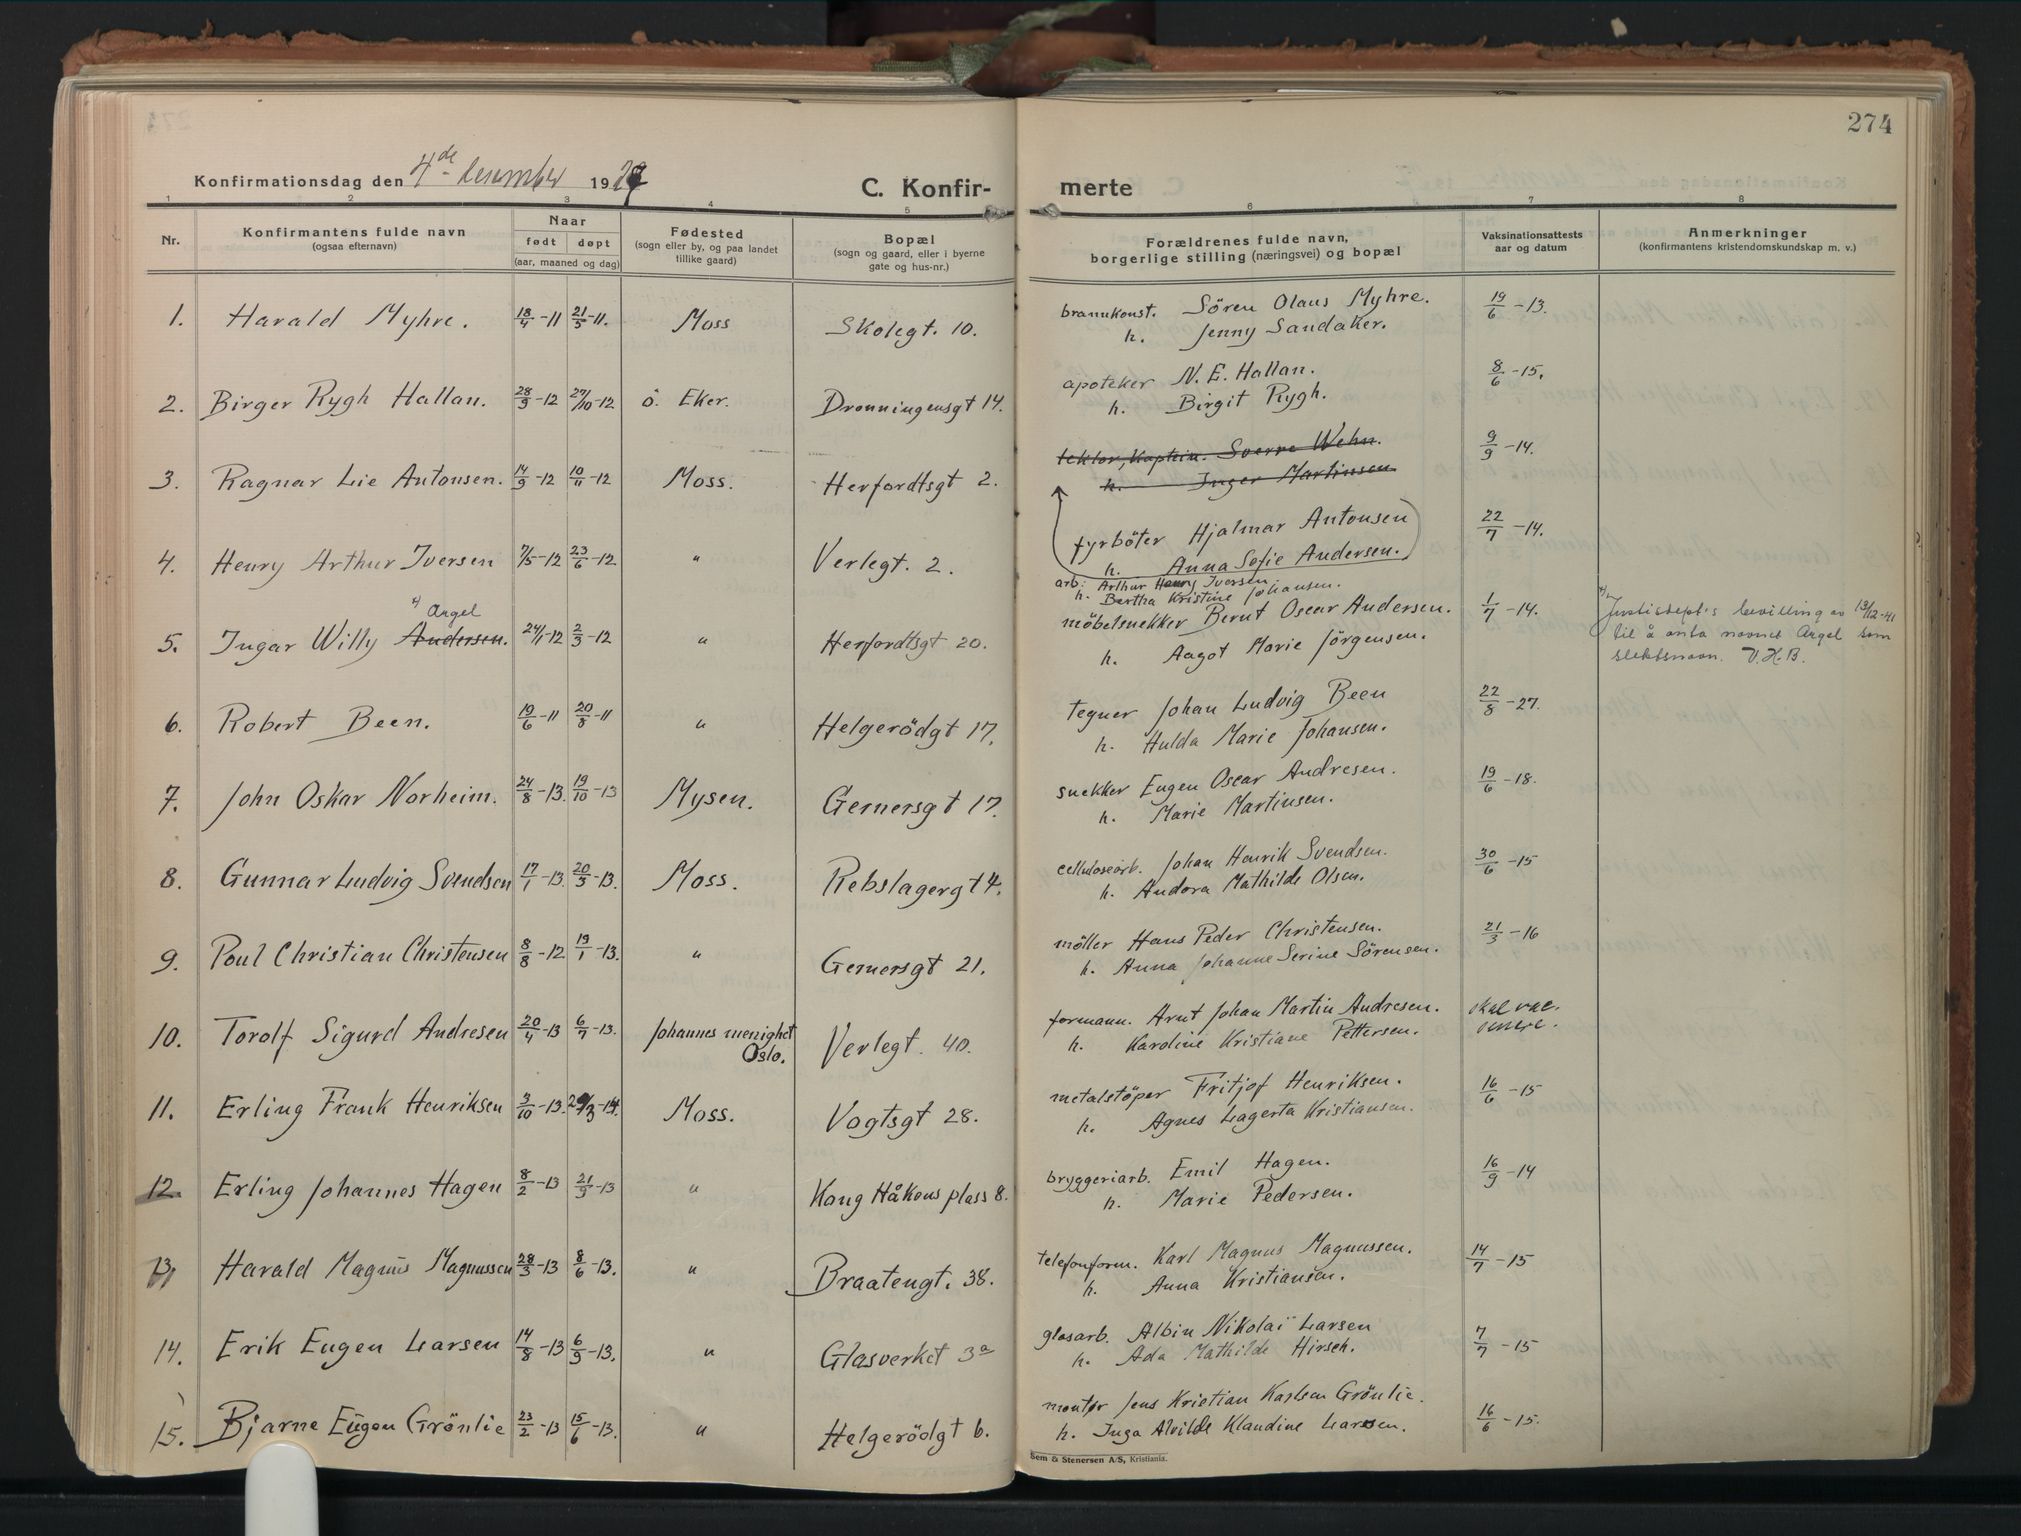 274
Konfirmationsdag den 4de desember 1927
C. Konfir- merte
1 2 3 4 5 6 7 8
Nr.
Konfirmantens fulde navn
(ogsaa efternavn)
Naar
født døpt
(aar, maaned og dag)
Fødested
(sogn eller by, og paa landet
tillike gaard)
Bopæl
(sogn og gaard, eller i byerne
gate og hus-nr.)
Forældrenes fulde navn,
borgerlige stilling (næringsvei) og bopæl
Vaksinationsattests
aar og datum
Anmerkninger
(konfirmantens kristendomskundskap m. v.)
1. Harald Myhre. 18/4-11 21/5-11. Moss Skolegt. 10. brannkonst. Sören Olaus Myhre. 19/6-13.
h. Jenny Sandaker.
2. Birger Rygh Hallan. 28/9-12 27/10-12 ö. Eker. Dronningensgt 14. apoteker N. E. Hallan. 8/6-15.
h. Birgit Rygh.
3. Ragnar Lie Antonsen. 14/9-12 10/11-12 Moss. Herfordtsgt 2. lektor, Kaptein. Sverre Wehn. 9/9-14.
h. Inger Martinsen
4. Henry Arthur Iversen 7/5-12 23/6-12. " Verlegt. 2. fyrböter Hjalmar Antonsen 22/7-14.
h. Anna Sofie Andersen.
arb. Arthur Henry Iversen.
h. Bertha Kristine Johansen.
x) Argel
5. Ingar Willy Andersen. 24/1-12 2/3-12 " Herfordtsgt 20. möbelsnekker Bernt Oscar Andersen. 1/7-14. x) Justisdept's bevilling av 13/12-41
h. Aagot Marie Jörgensen. til å anta navnet Argel som
slektsnavn. V.H.B.
6. Robert Been. 19/6-11 20/8-11 " Helgerödgt 17. tegner Johan Ludvig Been 22/8-27.
h. Hulda Marie Johansen.
7. John Oskar Norheim. 24/8-13. 19/10-13 Mysen. Gernersgt 17. snekker Eugen Oscar Andresen. 19/6-18.
h. Marie Martinsen.
8. Gunnar Ludvig Svendsen 17/1-13. 20/3-13. Moss. Rebslagergt 4. celluloseärb. Johan Henrik Svendsen. 30/6-15
h. Andora Mathilde Olsen.
9. Poul Christian Christensen 8/8-12 19/1-13. " Gernersgt 21. möller Hans Peder Christensen. 21/3-16
h. Anna Johanne Serine Sörensen.
10. Torolf Sigurd Andresen 20/4-13 6/7-13. Johannes menighet Oslo. Verlegt. 40. formann. Arnt Johan Martin Andresen. skal vac.
h. Karoline Kristiane Pettersen. senere.
11. Erling Frank Henriksen 3/10-13. 29/3-14. Moss. Vogtsgt 28. metalstöper Fritjof Henriksen. 16/6-15
h. Agnes Lagerta Kristiansen.
12. Erling Johannes Hagen 8/2-13 21/9-13 " Kong Håkons plass 8. bryggeriarb. Emil Hagen. 16/9-14
h. Marie Pedersen.
13. Harald Magnus Magnussen 28/3-13 8/6-13. " Braatengt. 38. telefonform. Karl Magnus Magnussen. 14/7-15
h. Anna Kristiansen.
14. Erik Eugen Larsen 14/8-13 6/9-13. " Glasverket 3a glasarb. Albin Nikolai Larsen 7/7-15
h. Ada Mathilde Hirsch.
15. Bjarne Eugen Grönlie 23/2-13 15/6-13. " Helgerödgt 6. montør Jens Kristian Karlsen Grönlie. 16/6-15.
h. Inga Alvilde Klaudine Larsen.
Sem & Stenersen A/S, Kristiania.